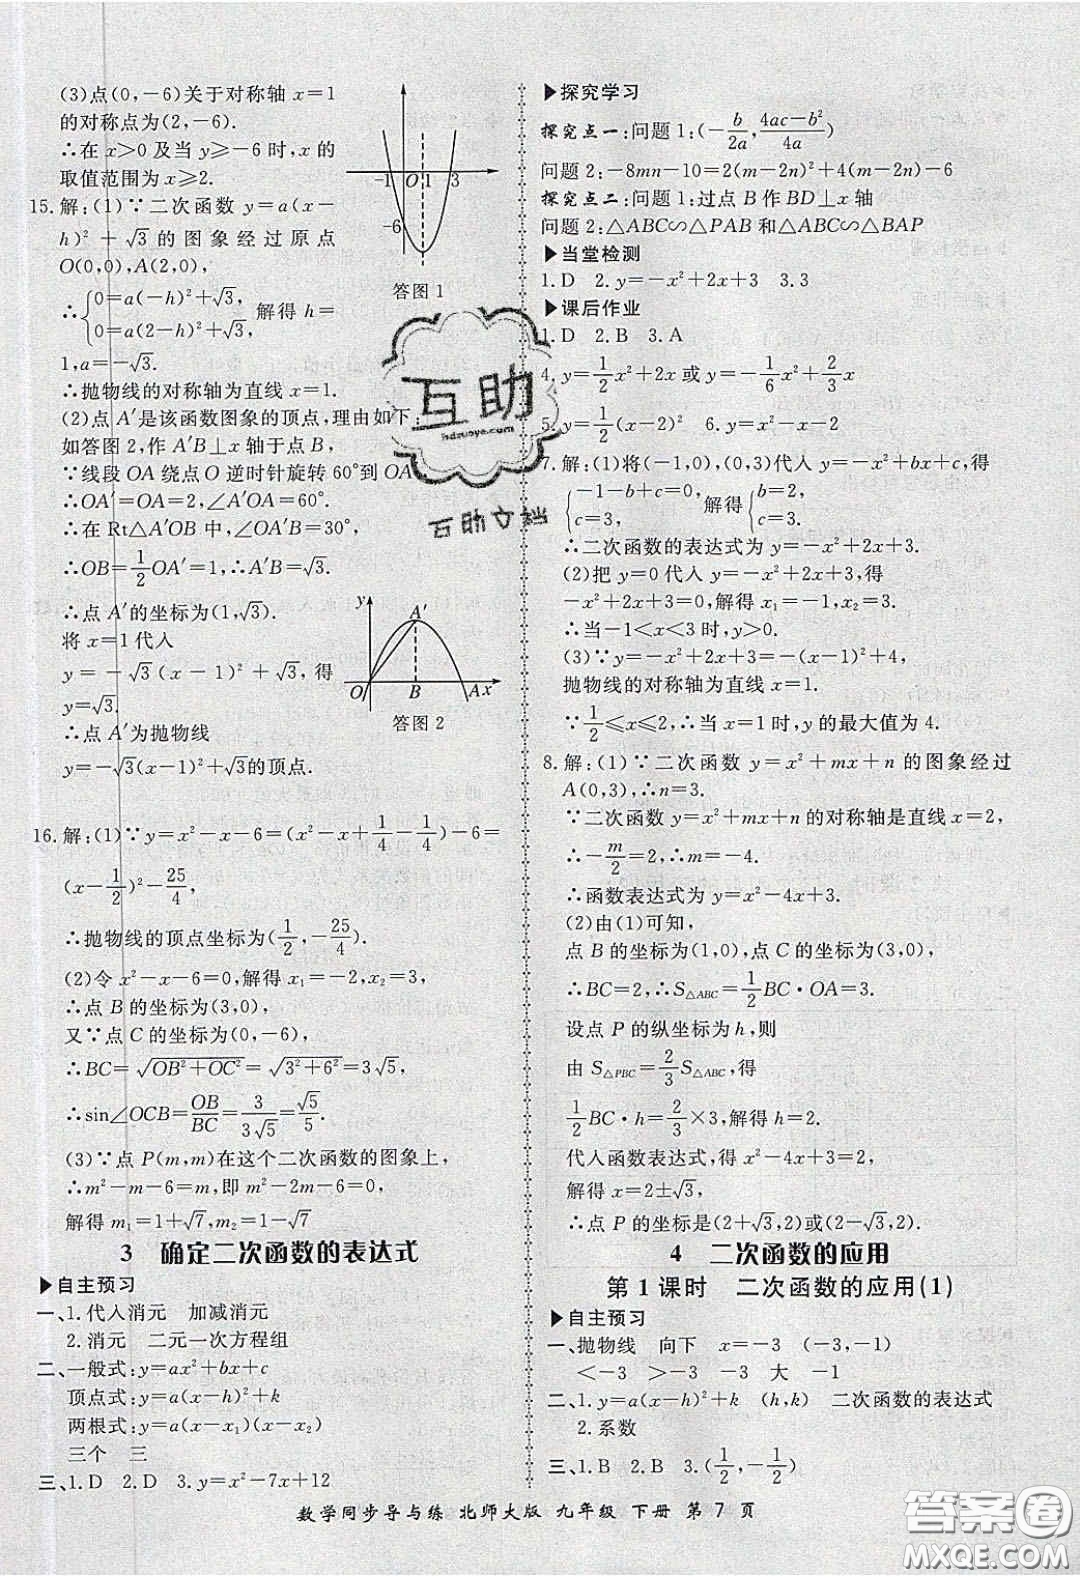 (3)点(0,-6)关于对称轴 x=1
的对称点为(2,-6).
∴在 x>0 及当 y≥-6 时,x 的
取值范围为 x≥2.
15.解:(1)∵二次函数 y=a(x-
h)²+√3 的图象经过原点
O(0,0),A(2,0),
∴{0=a(-h)²+√3, 0=a(2-h)²+√3, 解得 h=
1,a=-√3.
∴抛物线的对称轴为直线 x=1.
(2)点 A′是该函数图象的顶点,理由如下:
如答图 2,作 A′B⊥x 轴于点 B,
∵线段 OA 绕点 O 逆时针旋转 60°到 OA
∴OA′=OA=2,∠A′OA=60°.
∴在 Rt△A′OB 中,∠OB=30°,
∴OB=1/2 OA′=1,∴A′B=√3.
∴点 A′的坐标为(1,√3).
将 x=1 代入
y=-√3(x-1)²+√3,得
y=√3.
∴点 A′为抛物线
y=-√3(x-1)²+√3的顶点.
-1 O 1 3 x
-6
答图 1
y A′
O B A x
答图 2
16.解:(1)∵y=x²-x-6=(x²-x+1/4-1/4)-6=
(x-1/2)²-25/4,
∴抛物线的顶点坐标为(1/2,-25/4).
(2)令 x²-x-6=0,解得 x₁=-2,x₂=3,
∴点 B 的坐标为(3,0),
又∵点 C 的坐标为(0,-6),
∴BC=√(OB²+OC²)=√(3²+6²)=3√5,
∴sin∠OCB=OB/BC=3/(3√5)=√5/5.
(3)∵点 P(m,m)在这个二次函数的图象上,
∴m²-m-6=m,即 m²-2m-6=0,
解得 m₁=1+√7,m₂=1-√7
3 确定二次函数的表达式
▶自主预习
一、1.代入消元 加减消元
2.消元 二元一次方程组
二、一般式:y=ax²+bx+c
顶点式:y=a(x-h)²+k
两根式:y=a(x-x₁)(x-x₂)
三个 三
三、1.D 2.D 3.y=x²-7x+12
▶探究学习
探究点一:问题 1:(-b/2a,(4ac-b²)/4a)
问题 2:-8mn-10=2(m-2n)²+4(m-2n)-6
探究点二:问题 1:过点 B 作 BD⊥x 轴
问题 2:△ABC∽△PAB 和△ABC∽△BAP
▶当堂检测
1.D 2.y=-x²+2x+3 3.3
▶课后作业
1.D 2.B 3.A
4.y=1/2 x²+2x 或 y=-1/6 x²+2/3 x
5.y=1/2(x-2)² 6.y=x²-x-2
7.解:(1)将(-1,0),(0,3)代入 y=-x²+bx+c,得
{-1-b+c=0, c=3, 解得{b=2, c=3.
∴二次函数的表达式为 y=-x²+2x+3.
(2)把 y=0 代入 y=-x²+2x+3,得
-x²+2x+3=0,解得 x₁=-1,x₂=3.
∴当-1<x<3 时,y>0.
(3)∵y=-x²+2x+3=-(x-1)²+4,
抛物线的对称轴为直线 x=1.
∵1/2≤x≤2,∴当 x=1 时,y 的最大值为 4.
8.解:(1)∵二次函数 y=x²+mx+n 的图象经过
A(0,3),∴n=3.
∵二次函数 y=x²+mx+n 的对称轴是直线 x=2,
∴-m/2=2,∴m=-4.
∴函数表达式为 y=x²-4x+3.
(2)由(1)可知,
点 B 的坐标为(1,0),点 C 的坐标为(3,0),
∴BC=2,∴S△ABC=1/2 BC·OA=3.
设点 P 的纵坐标为 h,则
由 S△PBC=2/3 S△ABC,得
1/2 BC·h=2/3×3,解得 h=2.
代入函数表达式,得 x²-4x+3=2,
解得 x=2±√3,
∴点 P 的坐标是(2+√3,2)或(2-√3,2).
4 二次函数的应用
第 1 课时 二次函数的应用(1)
▶自主预习
一、抛物线 向下 x=-3 (-3,-1)
<-3 >-3 -3 大 -1
二、1.y=a(x-h)²+k (h,k) 二次函数的表达式
2.系数
三、1.B 2.B 3.(1/2,-1/2)
数学同步导与练 北师大版 九年级 下册 第 7 页
互助
hdzuoye.com
答案圈
MXQE.COM